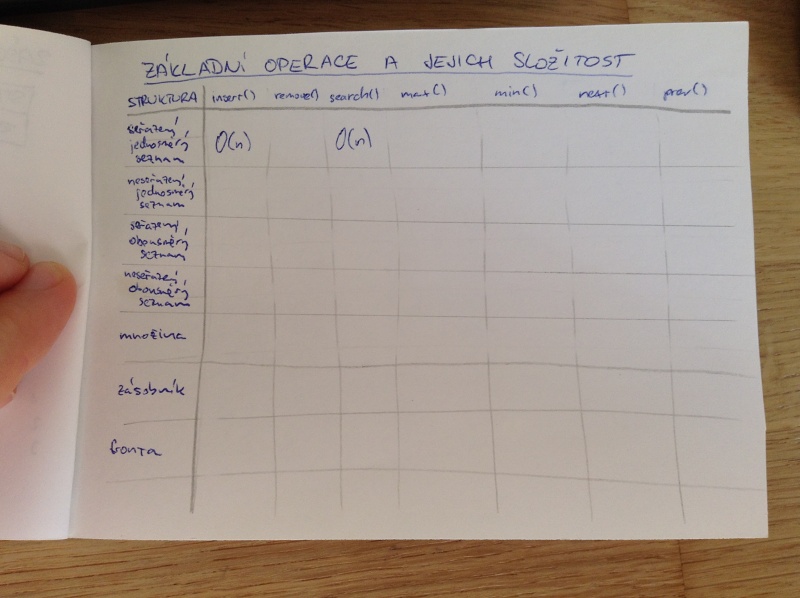 ZÁKLADNÍ OPERACE A JEJICH SLOŽITOST
STRUKTURA insert() remove() search() max() min() next() prev()
seřazený,
jednosměrný
seznam
O(n) O(n)
neseřazený,
jednosměrný
seznam
seřazený,
obousměrný
seznam
neseřazený,
obousměrný
seznam
množina
zásobník
fronta